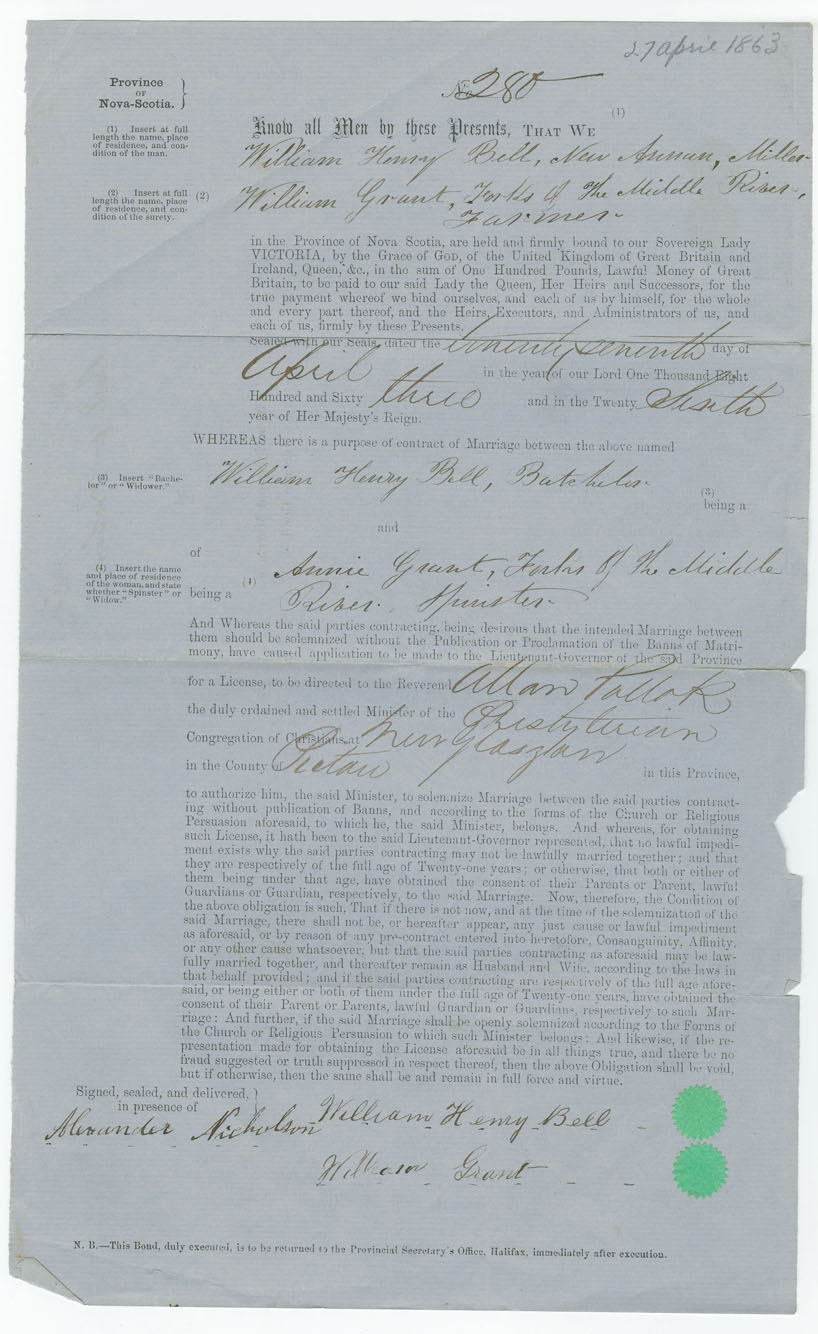 27 april 1863
Province
OF
Nova-Scotia.
No 280
(1)
(1) Insert at full
length the name, place
of residence, and con-
dition of the man.
Know all Men by these Presents, THAT WE
William Henry Bell, New Annan, Miller
(2) Insert at full
length the name, place
of residence, and con-
dition of the surety.
(2)
William Grant, Forks of The Middle River,
Farmer
in the Province of Nova Scotia, are held and firmly bound to our Sovereign Lady
VICTORIA, by the Grace of GOD, of the United Kingdom of Great Britain and
Ireland, Queen, &c., in the sum of One Hundred Pounds, Lawful Money of Great
Britain, to be paid to our said Lady the Queen, Her Heirs and Successors, for the
true payment whereof we bind ourselves, and each of us by himself, for the whole
and every part thereof, and the Heirs, Executors, and Administrators of us, and
each of us, firmly by these Presents.
Sealed with our Seals, dated the twenty seventh day of
April in the year of our Lord One Thousand Eight
Hundred and Sixty three and in the Twenty Sixth
year of Her Majesty's Reign.
WHEREAS there is a purpose of contract of Marriage between the above named
(3) Insert "Bache-
lor" or "Widower."
William Henry Bell, Batchelor
(3)
being a
and
of
(4) Insert the name
and place of residence
of the woman, and state
whether "Spinster" or
"Widow."
(4)
being a
Annie Grant, Forks of the Middle
River. Spinster
And Whereas the said parties contracting, being desirous that the intended Marriage between
them should be solemnized without the Publication or Proclamation of the Banns of Matri-
mony, have caused application to be made to the Lieutenant-Governor of the said Province
for a License, to be directed to the Reverend Allan Pollok
the duly ordained and settled Minister of the Presbyterian
Congregation of Christians at New Glasgow
in the County of Pictou in this Province,
to authorize him, the said Minister, to solemnize Marriage between the said parties contract-
ing without publication of Banns, and according to the forms of the Church or Religious
Persuasion aforesaid, to which he, the said Minister, belongs. And whereas, for obtaining
such License, it hath been to the said Lieutenant-Governor represented, that no lawful impedi-
ment exists why the said parties contracting may not be lawfully married together; and that
they are respectively of the full age of Twenty-one years; or otherwise, that both or either of
them being under that age, have obtained the consent of their Parents or Parent, lawful
Guardians or Guardian, respectively, to the said Marriage. Now, therefore, the Condition of
the above obligation is such, That if there is not now, and at the time of the solemnization of the
said Marriage, there shall not be, or hereafter appear, any just cause or lawful impediment
as aforesaid, or by reason of any pre-contract entered into heretofore, Consanguinity, Affinity,
or any other cause whatsoever, but that the said parties contracting as aforesaid may be law-
fully married together, and thereafter remain as Husband and Wife, according to the laws in
that behalf provided; and if the said parties contracting are respectively of the full age afore-
said, or being either or both of them under the full age of Twenty-one years, have obtained the
consent of their Parent or Parents, lawful Guardian or Guardians, respectively to such Mar-
riage: And further, if the said Marriage shall be openly solemnized according to the Forms of
the Church or Religious Persuasion to which such Minister belongs: And likewise, if the re-
presentation made for obtaining the License aforesaid be in all things true, and there be no
fraud suggested or truth suppressed in respect thereof, then the above Obligation shall be void,
but if otherwise, then the same shall be and remain in full force and virtue.
Signed, sealed, and delivered, }
in presence of
Alexander Nicholson William Henry Bell
William Grant
N. B.—This Bond, duly executed, is to be returned to the Provincial Secretary's Office, Halifax, immediately after execution.